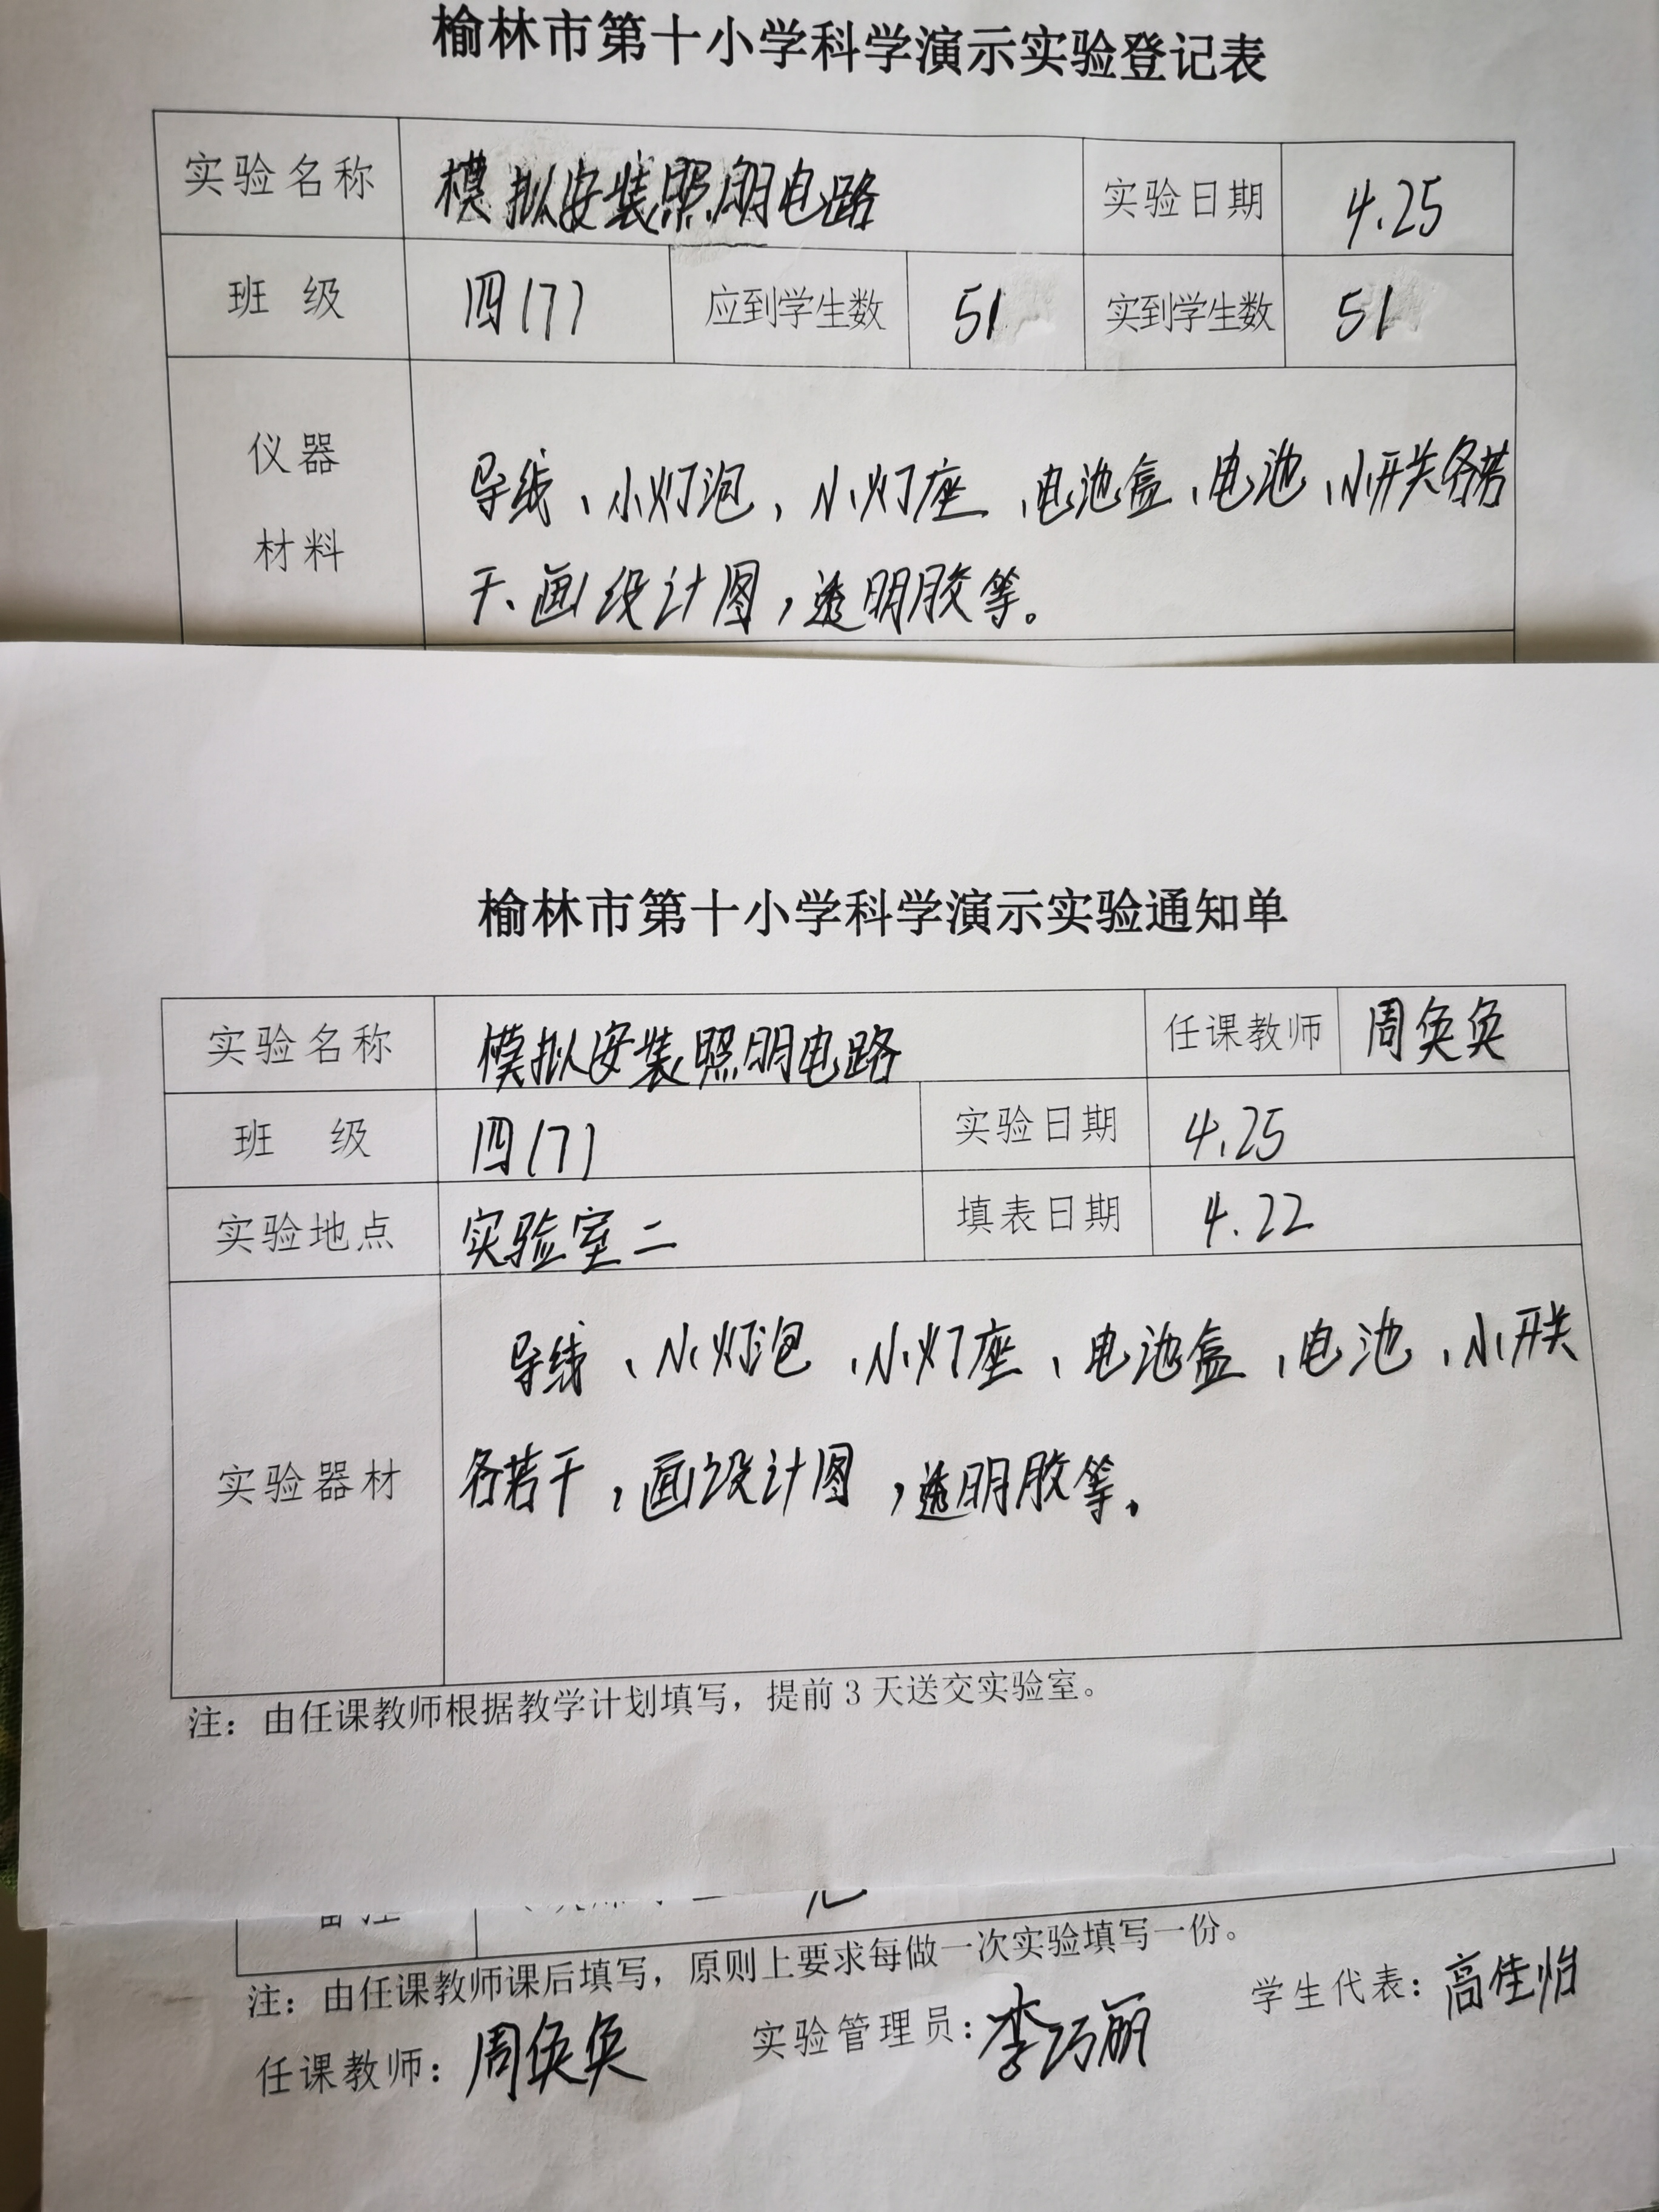 榆林市第十小学科学演示实验登记表
实验名称 模拟安装照明电路 实验日期 4.25
班 级 四(7) 应到学生数 51 实到学生数 51
仪器
材料
导线、小灯泡、小灯座、电池盒、电池、小开关各若
干、画设计图,透明胶等。
榆林市第十小学科学演示实验通知单
实验名称 模拟安装照明电路 任课教师 周奂奂
班 级 四(7) 实验日期 4.25
实验地点 实验室二 填表日期 4.22
导线、小灯泡、小灯座、电池盒、电池、小开关
实验器材 各若干,画设计图,透明胶等。
注:由任课教师根据教学计划填写,提前3天送交实验室。
备注
注:由任课教师课后填写,原则上要求每做一次实验填写一份。
任课教师:周奂奂 实验管理员:李巧丽 学生代表:高佳怡